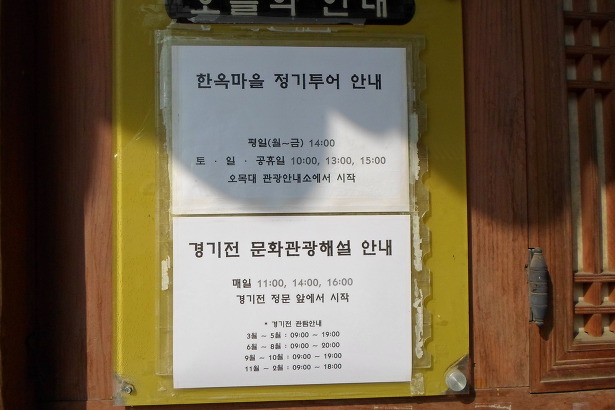 오늘의 안내
한옥마을 정기투어 안내
평일(월~금) 14:00
토 · 일 · 공휴일 10:00, 13:00, 15:00
오목대 관광안내소에서 시작
경기전 문화관광해설 안내
매일 11:00, 14:00, 16:00
경기전 정문 앞에서 시작
* 경기전 관람안내
3월 ~ 5월 : 09:00 ~ 19:00
6월 ~ 8월 : 09:00 ~ 20:00
9월 ~ 10월 : 09:00 ~ 19:00
11월 ~ 2월 : 09:00 ~ 18:00